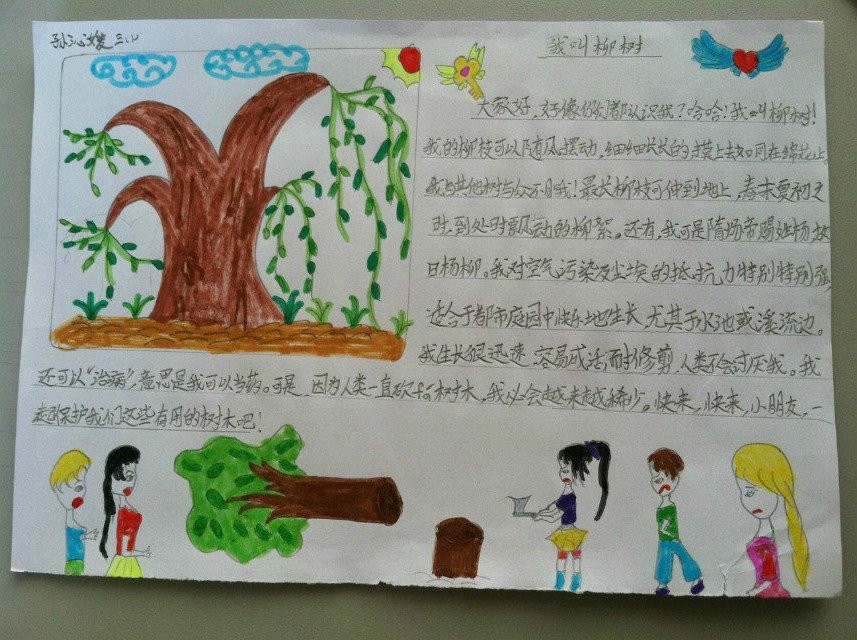 孙沁 三、
我叫柳树
大家好，好像你们都认识我？哈哈！我叫柳树！
我的柳枝可以随风摆动，细细长长的，摸上去如同在绵花上，
我与其他树与众不同哦！最长柳枝可伸到地上，春末夏初之
时，到处时飘动的柳絮。还有，我可是隋炀帝赐姓杨，
曰杨柳。我对空气污染及尘埃的抵抗力特别特别强，
适合于都市庭园中快乐地生长，尤其于水池或溪流边。
我生长很迅速，容易成活，耐修剪，人类不会讨厌我。我
还可以“治病”，意思是我可以当药。可是，因为人类一直砍伐树木，我以会越来越稀少。快来，快来，小朋友，一
起保护我们这些有用的树木吧！